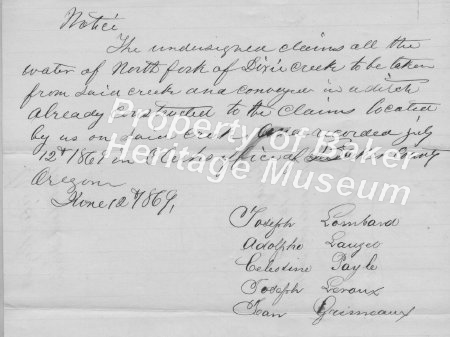 Notice
The undersigned claims all the
water of North fork of Dixie Creek to be taken
from said creek and conveyed in a ditch
already constructed to the claims located
by us on said creek and recorded july
12th 186 in
Oregon
June 12th 1869,
Joseph Lombard
Adolphe Lauzet
Celestine Payle
Joseph Leroux
Jean Grimeaux
Property of Baker
Heritage Museum